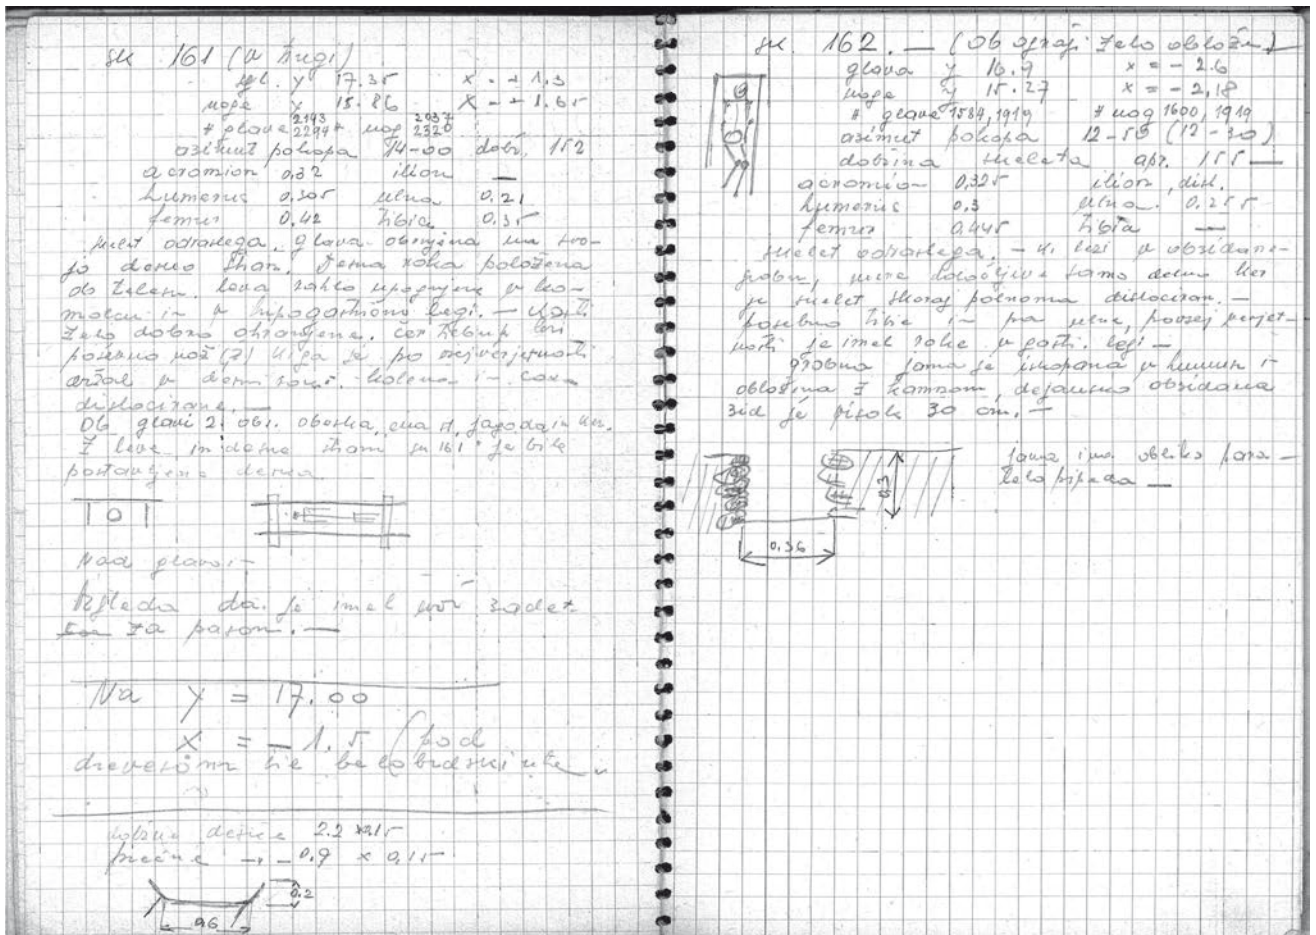 sk 161 (v trugi)
gl. y 17.35 x = - 1.3
noge y 15.86 x = - 1.65
2193 2037
# glave 2294 # nog 2320
azimut pokopa 14-00 dolž. 152
acromion 0,32 ilion —
humerus 0,305 ulna 0.21
femur 0,42 tibia 0.35
skelet odraslega, glava obrnjena na svo-
jo desno stran. Desna roka položena
ob telesu, leva rahlo upognjena v ko-
molcu in v hipogastrični legi. — Kosti
zelo dobro ohranjene. čez trebuh leži
poševno nož (?) ki ga je po najverjetnosti
držal v desni roki. kolena in coxa
dislocirane. —
Ob glavi 2 obs. obročka, ena st. jagoda in ker.
Z leve in desne strani sk 161 je bila
postavljena deska
Nad glavo —
Izgleda da je imel nož zadet
za pasom. —
Na y = 17.00
x = - 1.5 (pod
drevesom
dolžina deske 2.2 x 0.15
prečne → - 0.9 x 0,15
0.2
0.6
sk. 162. — (Ob ograji zelo obložen)
glava y 16.9 x = - 2.6
noge y 15.27 x = - 2,18
# glave 1584, 1919 # nog 1600, 1919
azimut pokopa 12-50 (12-30)
dolžina skeleta apr. 155 —
acromion 0,325 ilion, disl.
humerus 0.3 ulna. 0.255
femur 0,445 tibia —
skelet odraslega, — ki leži v obzidanem
grobu, mere določljive samo delno ker
je skelet skoraj polnoma dislociran. —
posebno tibie in pa ulne, povsej verjet-
nosti je imel roke v gastr. legi —
grobna jama je iskopana v humus i
obložena z kamnom, dejansko obzidana
zid je visok 30 cm. —
jama ima obliko para-
lelopipeda —
0.3
0.36